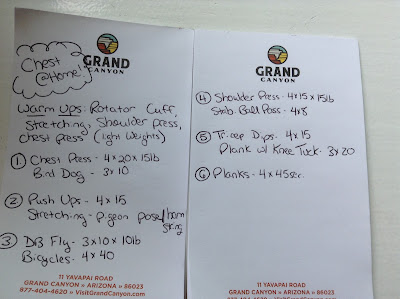 Chest
@Home!
GRAND
CANYON
Warm Ups: Rotator Cuff,
Stretching, Shoulder press,
chest press (light weights)
① Chest Press - 4x20x15lb
Bird Dog - 3x10
② Push Ups - 4x15
Stretching - pigeon pose/ham
string
③ DB Fly - 3x10x10lb
Bicycles - 4x40
11 YAVAPAI ROAD
GRAND CANYON » ARIZONA » 86023
877-404-4620 » VisitGrandCanyon.com
GRAND
CANYON
④ Shoulder Press - 4x15x15lb
Stab. Ball Pass - 4x8
⑤ Tricep Dips - 4x15
Plank w/ Knee Tuck - 3x20
⑥ Planks - 4x45sec.
11 YAVAPAI ROAD
GRAND CANYON » ARIZONA » 86023
877-404-4620 » VisitGrandCanyon.com